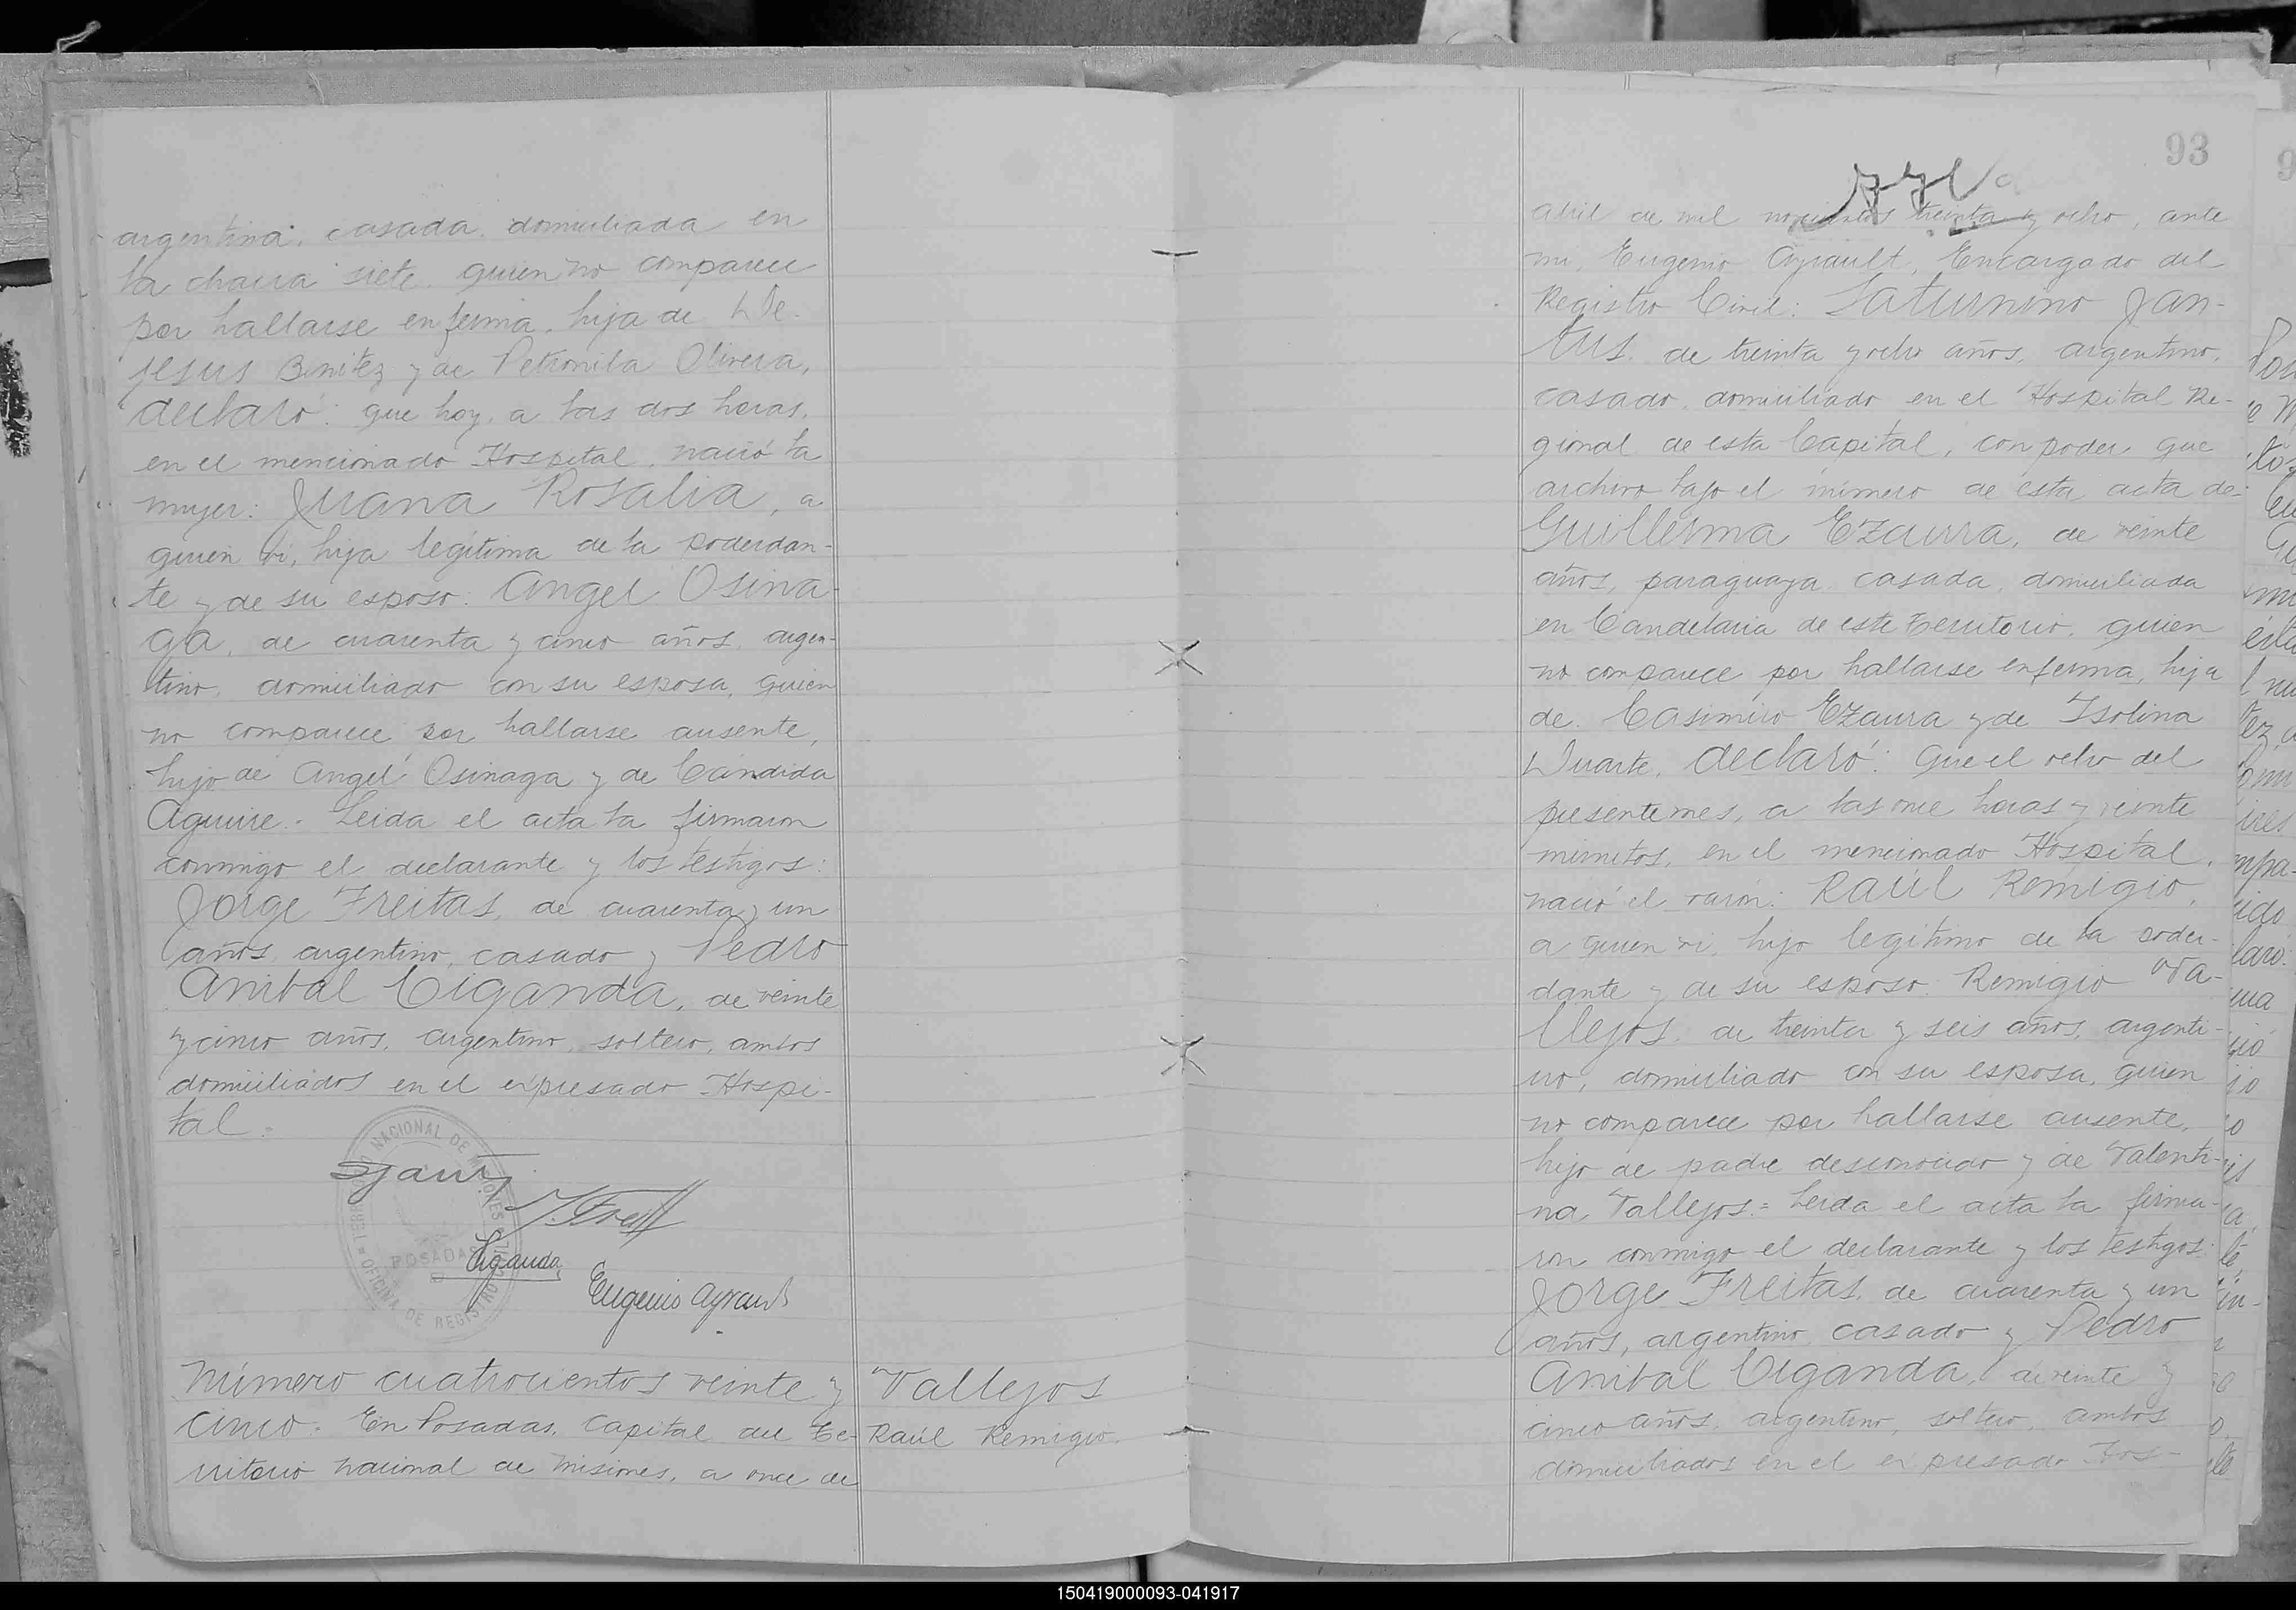 argentina, casada, domiciliada en
la chacra siete, quien no comparece
por hallarse enferma, hija de De
Jesus Benitez y de Petronila Olivera,
declaró: que hoy, a las dos horas,
en el mencionado Hospital, nació la
mujer: Juana Rosalia, a
quien vi, hija legítima de la poderdan-
te y de su esposo: Angel Osina-
ga, de cuarenta y cinco años, argen-
tino, domiciliado con su esposa, quien
no comparece por hallarse ausente,
hijo de Angel Osinaga y de Cándida
Aguirre.- Leida el acta la firmaron
conmigo el declarante y los testigos:
Jorge Freitas, de cuarenta y un
años, argentino, casado y Pedro
Anibal Ciganda, de veinte
y cinco años, argentino, soltero, ambos
domiciliados en el expresado Hospi-
tal.=
TERRITORIO NACIONAL DE MISIONES
POSADAS
OFICINA DE REGISTRO CIVIL
Ciganda
Eugenio Ayrault
Número cuatrocientos veinte y
cinco. En Posadas, Capital del Te-
rritorio Nacional de Misiones, a once de
Vallejos
Raúl Remigio.
93
abril de mil novecientos treinta y ocho, ante
mi, Eugenio Ayrault, Encargado del
Registro Civil: Saturnino Jan-
tus, de treinta y ocho años, argentino,
casado, domiciliado en el Hospital Re-
gional de esta Capital, con poder que
archivo bajo el número de esta acta de
Guillerma Ezaurra, de veinte
años, paraguaya, casada, domiciliada
en Candelaria de este Territorio, quien
no comparece por hallarse enferma, hija
de Casimiro Ezaurra y de Isolina
Duarte, declaró: Que el ocho del
presente mes, a las once horas y veinte
minutos, en el mencionado Hospital,
nació el varón: Raúl Remigio,
a quien vi, hijo legítimo de la poder-
dante y de su esposo: Remigio Va-
llejos, de treinta y seis años, argenti-
no, domiciliado con su esposa, quien
no comparece por hallarse ausente,
hijo de padre desconocido y de Valenti-
na Vallejos.= Leida el acta la firma-
ron conmigo el declarante y los testigos:
Jorge Freitas, de cuarenta y un
años, argentino, casado y Pedro
Anibal Ciganda, de veinte y
cinco años, argentino, soltero, ambos
domiciliados en el expresado Hos-
150419000093-041917